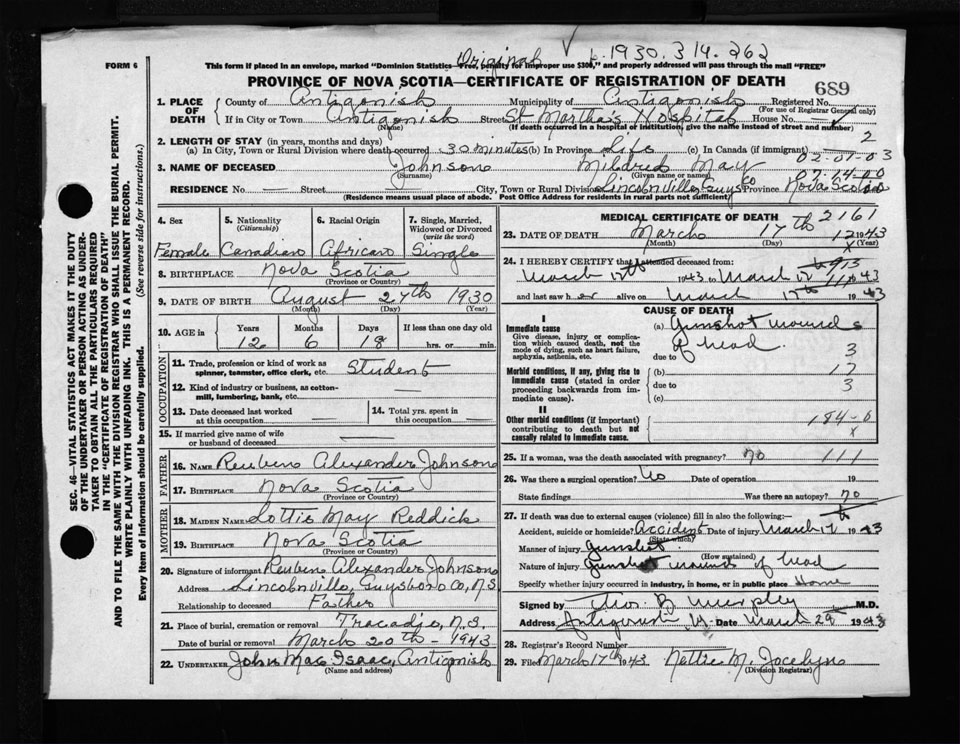 Original √ b. 1930. 314. 262
FORM 6 This form if placed in an envelope, marked "Dominion Statistics—Free, penalty for improper use $300," and properly addressed will pass through the mail "FREE"
PROVINCE OF NOVA SCOTIA—CERTIFICATE OF REGISTRATION OF DEATH
689
1. PLACE OF DEATH County of Antigonish Municipality of Antigonish Registered No.
(For use of Registrar General only)
If in City or Town Antigonish Street St Martha's Hospital House No. —
(Name) (If death occurred in a hospital or institution, give the name instead of street and number)
2. LENGTH OF STAY (in years, months and days) 2
(a) In City, Town or Rural Division where death occurred 30 minutes (b) In Province Life (c) In Canada (if immigrant)
02-01-03
3. NAME OF DECEASED Johnson Mildred May
(Surname) (Given name or names) 07-64-00
RESIDENCE No. — Street — City, Town or Rural Division Lincolnville, Guys Co Province Nova Scotia
(Residence means usual place of abode. Post Office Address for residents in rural parts not sufficient)
SEC. 46—VITAL STATISTICS ACT MAKES IT THE DUTY
OF THE UNDERTAKER OR PERSON ACTING AS UNDER-
TAKER TO OBTAIN ALL THE PARTICULARS REQUIRED
IN THE "CERTIFICATE OF REGISTRATION OF DEATH"
AND TO FILE THE SAME WITH THE DIVISION REGISTRAR WHO SHALL ISSUE THE BURIAL PERMIT.
WRITE PLAINLY WITH UNFADING INK. THIS IS A PERMANENT RECORD.
Every item of information should be carefully supplied. (See reverse side for instructions.)
4. Sex 5. Nationality 6. Racial Origin 7. Single, Married,
(Citizenship) Widowed or Divorced
(write the word)
Female Canadian African Single
8. BIRTHPLACE Nova Scotia
(Province or Country)
9. DATE OF BIRTH August 27th 1930
(Month) (Day) (Year)
10. AGE in Years Months Days If less than one day old
12 6 18 hrs. or min.
OCCUPATION
11. Trade, profession or kind of work as
spinner, teamster, office clerk, etc. Student
12. Kind of industry or business, as cotton-
mill, lumbering, bank, etc. —
13. Date deceased last worked
at this occupation —
14. Total yrs. spent in
this occupation —
15. If married give name of wife
or husband of deceased —
FATHER
16. NAME Reuben Alexander Johnson
17. BIRTHPLACE Nova Scotia
(Province or Country)
MOTHER
18. MAIDEN NAME Lottie May Reddick
19. BIRTHPLACE Nova Scotia
(Province or Country)
20. Signature of informant Reuben Alexander Johnson
Address Lincolnville, Guysboro Co, N.S.
Relationship to deceased Father
21. Place of burial, cremation or removal Tracadie, N.S.
Date of burial or removal March 20th - 1943
22. UNDERTAKER John Mac Isaac, Antigonish
(Name and address)
MEDICAL CERTIFICATE OF DEATH 2161
23. DATE OF DEATH March 17th 12 1943
(Month) (Day) x (Year)
24. I HEREBY CERTIFY that I attended deceased from:
March 17th 1943 to March 17 1943
and last saw her alive on March 17th 1943
CAUSE OF DEATH
I
Immediate cause
Give disease, injury or complica-
tion which caused death, not the
mode of dying, such as heart failure,
asphyxia, asthenia, etc.
(a) Gunshot wounds
of head. 3
due to
Morbid conditions, if any, giving rise to
immediate cause (stated in order
proceeding backwards from im-
mediate cause).
(b) 17
due to 3
(c)
II
Other morbid conditions (if important)
contributing to death but not
causally related to immediate cause.
184-6
x
25. If a woman, was the death associated with pregnancy? no 111
26. Was there a surgical operation? No Date of operation 19
State findings Was there an autopsy? no
27. If death was due to external causes (violence) fill in also the following:—
Accident, suicide or homicide? Accident Date of injury March 17 1943
(State which)
Manner of injury Gunshot.
(How sustained)
Nature of injury Gunshot wounds of head
Specify whether injury occurred in industry, in home, or in public place Home
Signed by Thos. B Murphy M.D.
Address Antigonish Date March 29 1943
28. Registrar's Record Number
29. Filed March 17th 1943 Nettie M. Jocelyn
(Division Registrar)